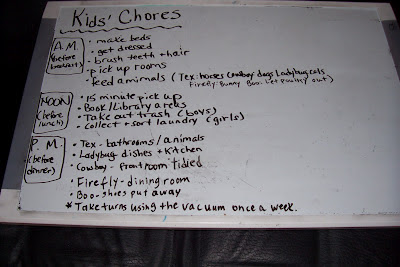 Kids' Chores
A.M.
(before breakfast)
• make beds
• get dressed
• brush teeth + hair
• pick up rooms
• feed animals (Tex: horses Cowboy: dogs Ladybug: cats
Firefly: Bunny Boo: Let Poultry out)
NOON
(before lunch)
• 15 minute pick up
• Book/Library areas
• Take out trash (boys)
• Collect + sort laundry (girls)
P.M.
(before dinner)
• Tex - bathrooms/animals
• Ladybug dishes + Kitchen
• Cowboy - front room tidied
• Firefly - dining room
• Boo - shoes put away
* Take turns using the vacuum once a week.